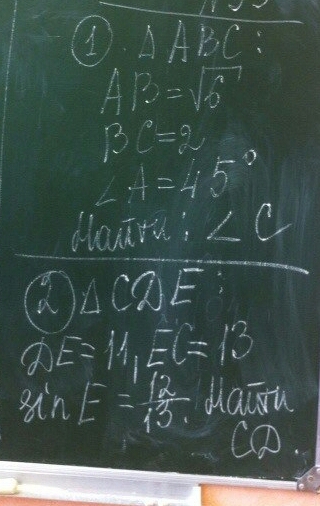 ① ΔABC:
AB=√6
BC=2
∠A=45°
Найти: ∠C
② ΔCDE:
DE=11, EC=13
sin E = 12/13. Найти
CD.